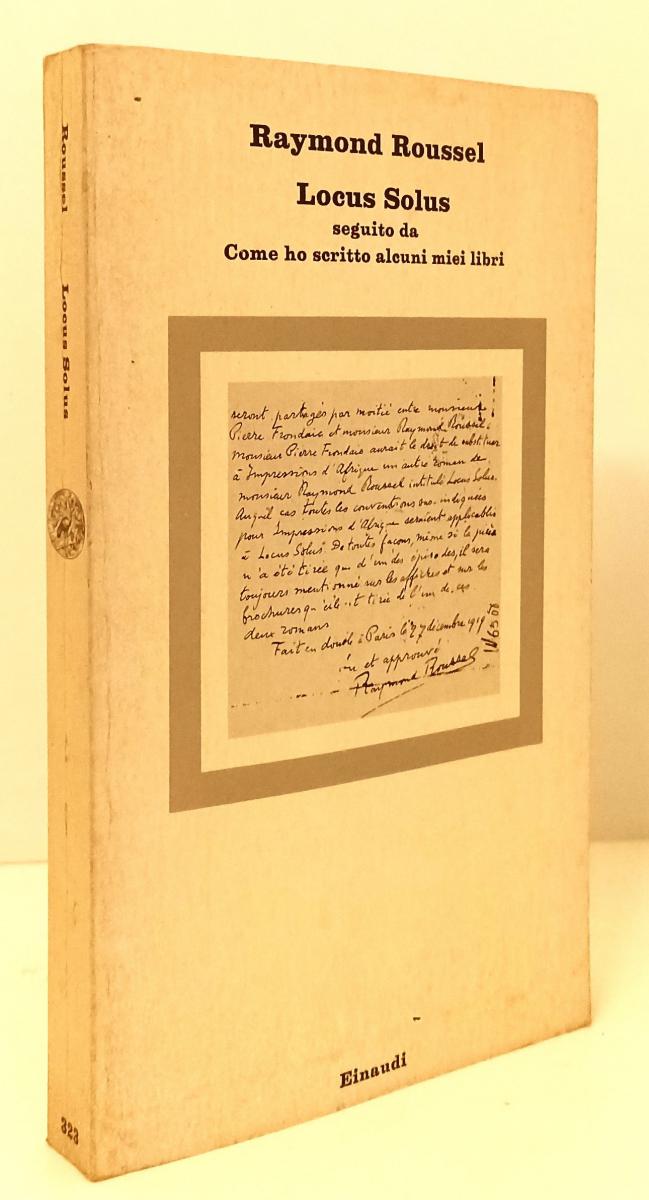 Raymond Roussel
Locus Solus
seguito da
Come ho scritto alcuni miei libri
seront partagés par moitié entre monsieur
Pierre Frondaie et monsieur Raymond Roussel.
monsieur Pierre Frondaie aurait le droit de substituer
à Impressions d'Afrique un autre roman de
monsieur Raymond Roussel intitulé Locus Solus.
Auquel cas toutes les conventions indiquées
pour Impressions d'Afrique seraient applicables
à Locus Solus. De toutes façons, même si la pièce
n'a été tirée que d'un des épisodes, il sera
toujours mentionné sur les affiches et sur les
brochures qu'elle est tirée de l'un de ces
deux romans
Fait en double à Paris le 27 décembre 1919
et approuvé
Raymond Roussel
Einaudi
Roussel Locus Solus
323